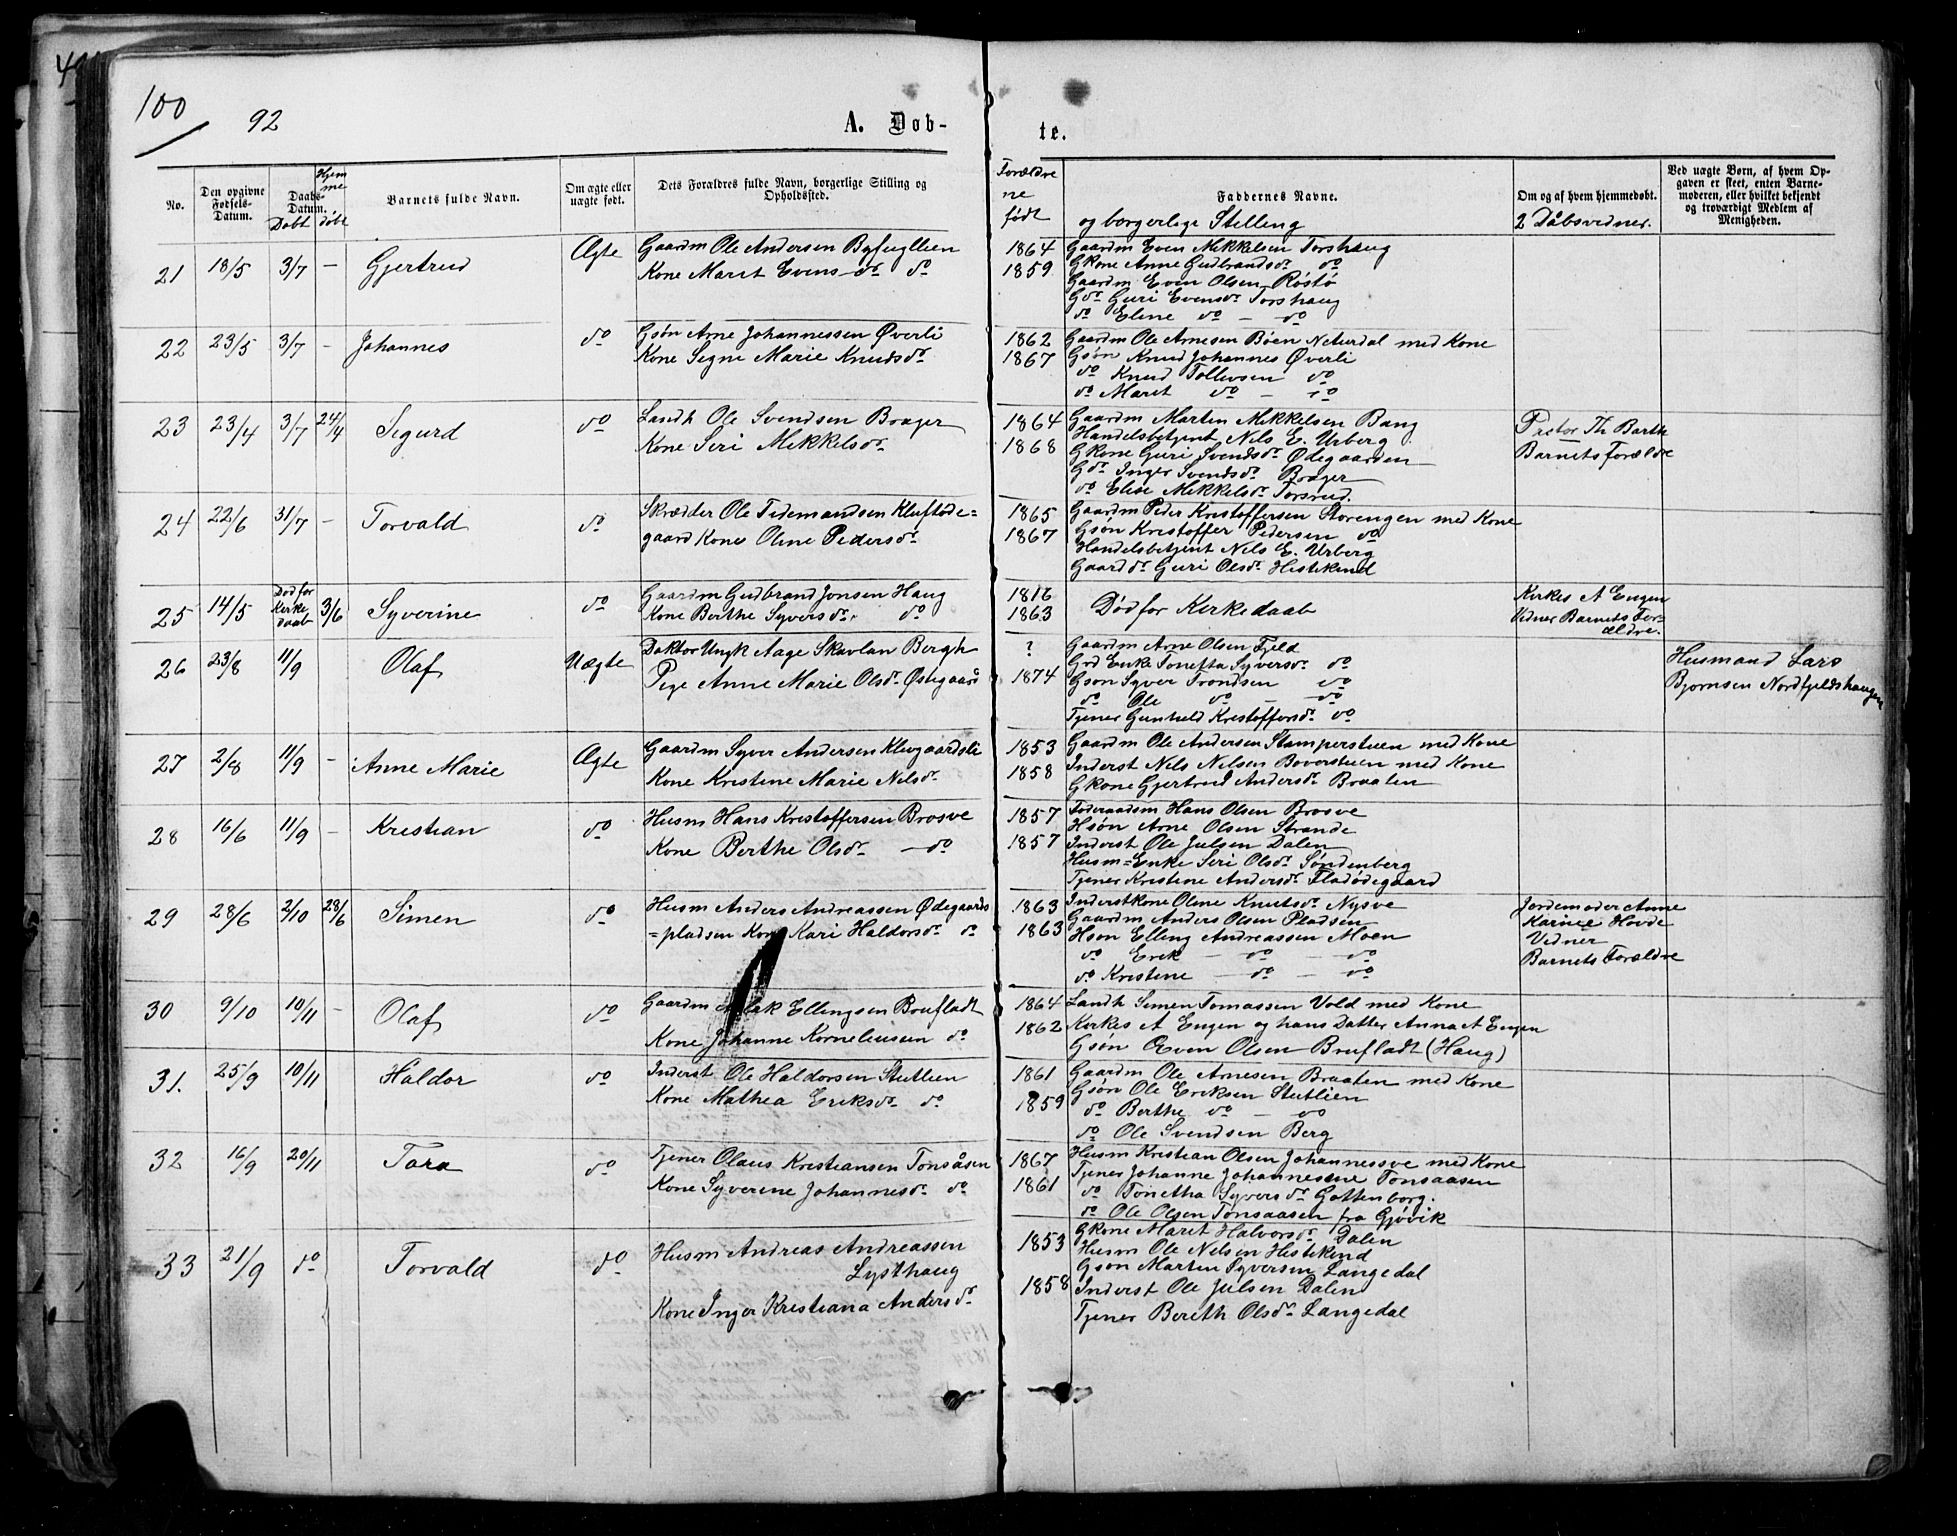 100
92
A. Døb-
te.
No.
Den opgivne Fødsels-Datum.
Daabs-Datum.
Døbt
Hjem
me
døbt
Barnets fulde Navn.
Om ægte eller uægte født.
Dets Forældres fulde Navn, borgerlige Stilling og Opholdssted.
Forældre
ne
født
Faddernes Navne.
og borgerlige Stelling
Om og af hvem hjemmedøbt.
2 Dåbsvidner.
Ved uægte Børn, af hvem Op-
gaven er skeet, enten Barne-
moderen, eller hvilket bekjendt
og troværdigt Medlem af
Menigheden.
21 18/5 3/7 – Gjertrud Ægte
Gaardm Ole Andersen Byfuglien
Kone Marit Evens do do
1864
1859
Gaardm Even Mikkelsen Torshaug
Gkone Anne Gudbrandsdr do
Gaardm Even Olsen Røstø
Gdr Guri Evensdr Torshaug
do Eline do – do
22 23/5 3/7 – Johannes do
Gsøn Arne Johannessen Øverli
Kone Segne Marie Knudsdr
1862
1867
Gaardm Ole Arnesen Bøen Neterdal med Kone
Gsøn Knud Johannes Øverli
do Knud Tollevsen do
do Marit do – do
23 23/4 3/7 24/4 Sigurd do
Landh Ole Svendsen Brager
Kone Seri Mikkelsdr
1864
1868
Gaardm Martin Mikkelsen Bang
Handelsbetjent Nils E. Urberg
Gkone Guri Svendsdr Ødegaarden
Gdr Inger Svendsdr Brager
do Elise Mikkelsdr Torsrud.
Pastor Th Barth
Barnets forældre
24 22/6 31/7 – Torvald do
Skrædder Ole Tidemandsen Kluftøde=
gaard Kone Oline Pedersdr
1865
1867
Gaardm Peder Kristoffersen Storengen med Kone
Gsøn Kristoffer Pedersen do
Handelsbetjent Nils E. Urberg
Gaarddr Guri Olsdr Hestekind
25 14/5 Død før Kirke daab 3/6 Syverine do
Gaardm Gudbrand Jonsen Haug
Kone Berthe Syversdr do
1816
1863
Død for Kirkedaab
Kirkes A Engen
Vidner Barnets For=
ældre.
26 23/8 11/9 Olaf Uægte
Doktor Ungk Aage Skavlan Bergh
Pige Anne Marie Olsdr Østegaard
?
1874
Gaardm Arne Olsen Fjeld
Grd Enke Tonetta Syversdr do
Gsøn Syver Trondsen do
do Ole do – do
Tjener Gunhild Kristoffersdr do
Husmand Lars
Bjørnsen Nordfjeldshaugen
27 2/8 11/9 – Anne Marie Ægte
Gaardm Syver Andersen Klevgaardsli
Kone Kristine Marie Nilsdr
1853
1858
Gaardm Ole Andersen Stamperstuen med Kone
Inderst Nils Nilsen Boverstuen med Kone
Gkone Gjertrud Andersdr Braaten
28 16/6 11/9 – Kristian do
Husm Hans Kristoffersen Brosve
Kone Berthe Olsdr – do
1857
1857
Føderaadsm Hans Olsen Brosve
Hsøn Arne Olsen Strande
Inderst Ole Julsen Dalen
Husm=Enke Seri Olsdr Søndenberg
Tjener Kristine Andersdr Fladødegaard
29 28/6 2/10 28/6 Simen do
Husm Anders Andreassen Ødegaards
=pladsen Kone Kari Haldorsdr do
1863
1863
Inderstkone Oline Knutsdr Nysve
Gaardm Anders Olsen Pladsen
Hsøn Elling Andreassen Moen
do Erik – do – do
do Kristine – do – do
Jordemoder Anne
Karine Hovde
Vidner
Barnets Forældre
30 9/10 10/11 – Olaf do
Gaardm Ellingsen Brufladt
Kone Johanne Korneliussen do
1864
1862
Landh Simen Tomassen Vold med Kone
Kirkes A Engen og hans Datter Anna A Engen
Gsøn Even Olsen Brufladt (Haug)
31. 25/9 10/11 Haldor do
Inderst Ole Haldorsen Stutlien
Kone Mathea Eriksdr do
1861
1859
Gaardm Ole Arnesen Braaten med Kone
Gsøn Ole Eriksen Stutlien
do Berthe do – do
do Ole Svendsen Berg
32 16/9 20/11 Tora do
Tjener Olaus Kristiansen Tonsåsen
Kone Syverine Johannesdr do
1867
1861
Husm Kristian Olsen Johannessve med Kone
Tjener Johanne Johannesdr Tonsaasen
do Tonetha Syversdr Gottenborg.
do Ole Olsen Tonsaasen fra Gjøvik
33 21/9 do Torvald do
Husm Andreas Andreassen
Lysthaug
Kone Inger Kristiana Andersdr
1853
1858
Gkone Marit Halvorsdr Dalen
Husm Ole Nilsen Hestekind
Gsøn Martin Syversen Langedal
Inderst Ole Julsen Dalen
Tjener Berith Olsdr Langedal